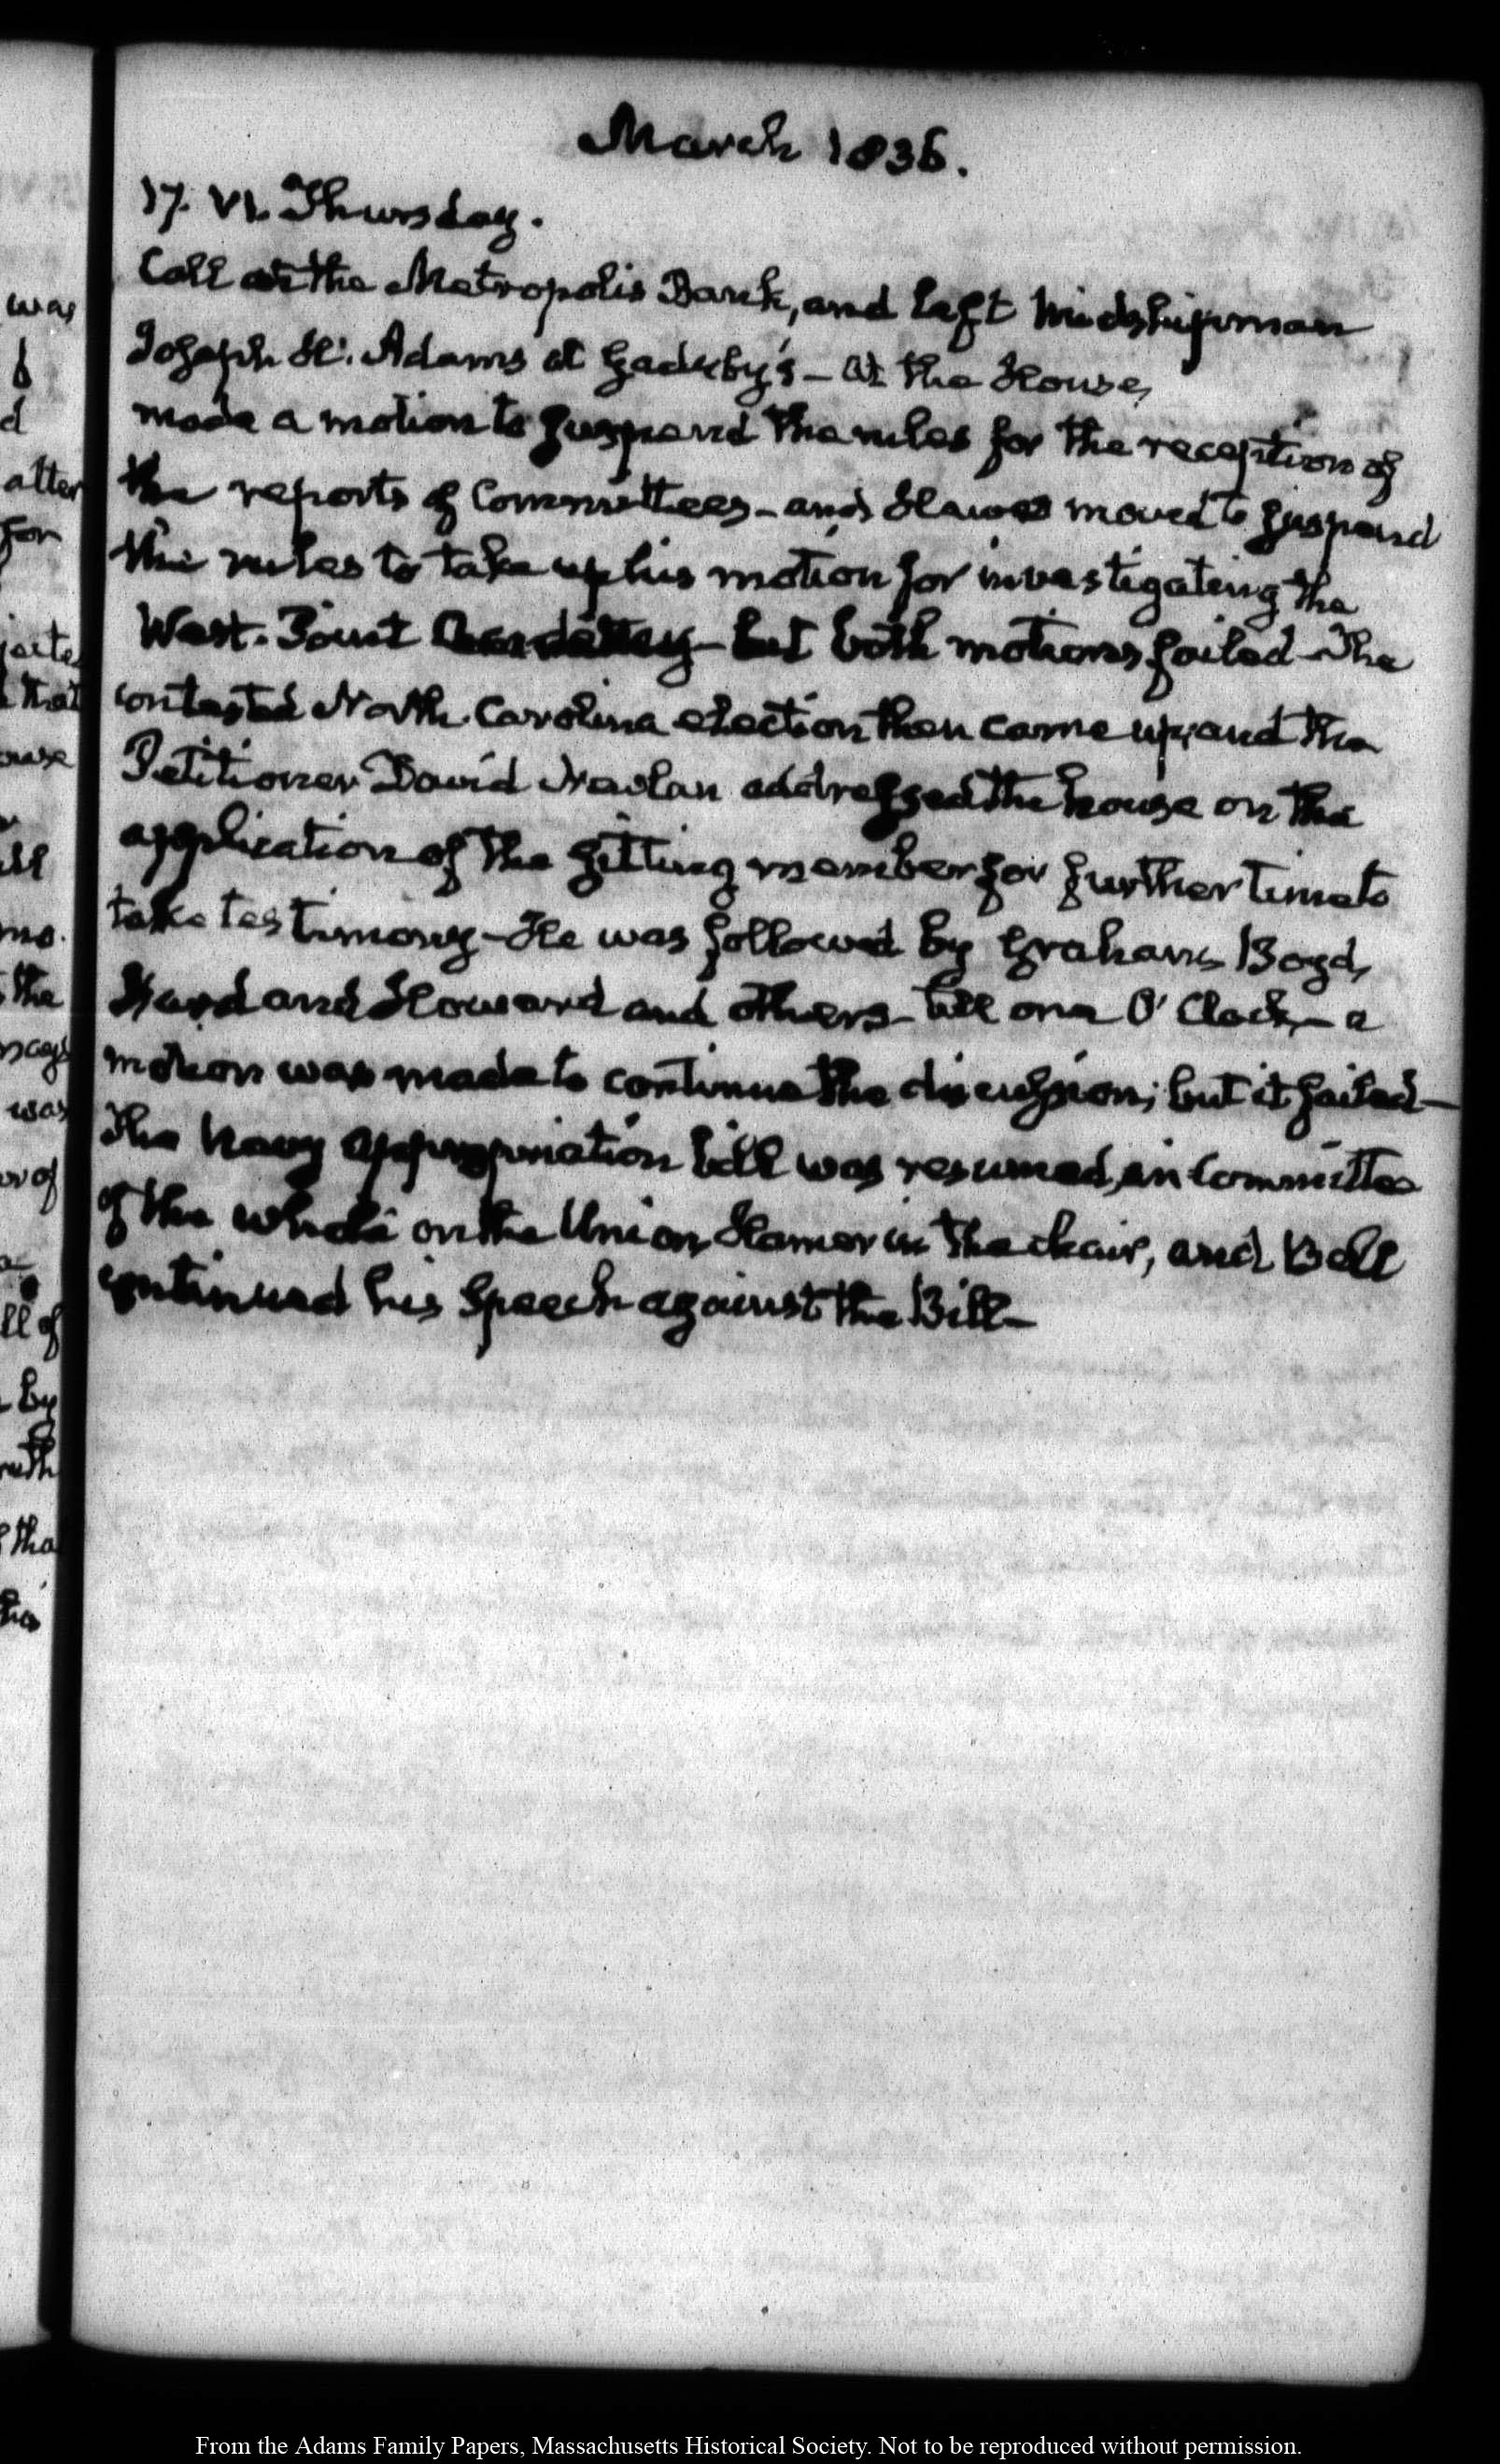 March 1836.
17. VI. Thursday.
Call at the Metropolis Bank, and left Midshipman
Joseph H. Adams at Gadsby's – At the House,
made a motion to suspend the rules for the reception of
the reports of Committees – and Hawes moved to suspend
the rules to take up his motion for investigating the
West-Point Academy – but both motions failed – The
contested North-Carolina election then came up, and the
Petitioner David Newlan addressed the house on the
application of the sitting member for further time to
take testimony – He was followed by Graham, Boyd,
Hard and Howard and others – till one O'Clock – a
motion was made to continue the discussion; but it failed –
The Navy appropriation bill was resumed, in Committee
of the whole on the Union, Hamer in the chair, and Bell
continued his speech against the Bill –
was
d
atter
for
that
the
was
of
ll of
by
the
From the Adams Family Papers, Massachusetts Historical Society. Not to be reproduced without permission.